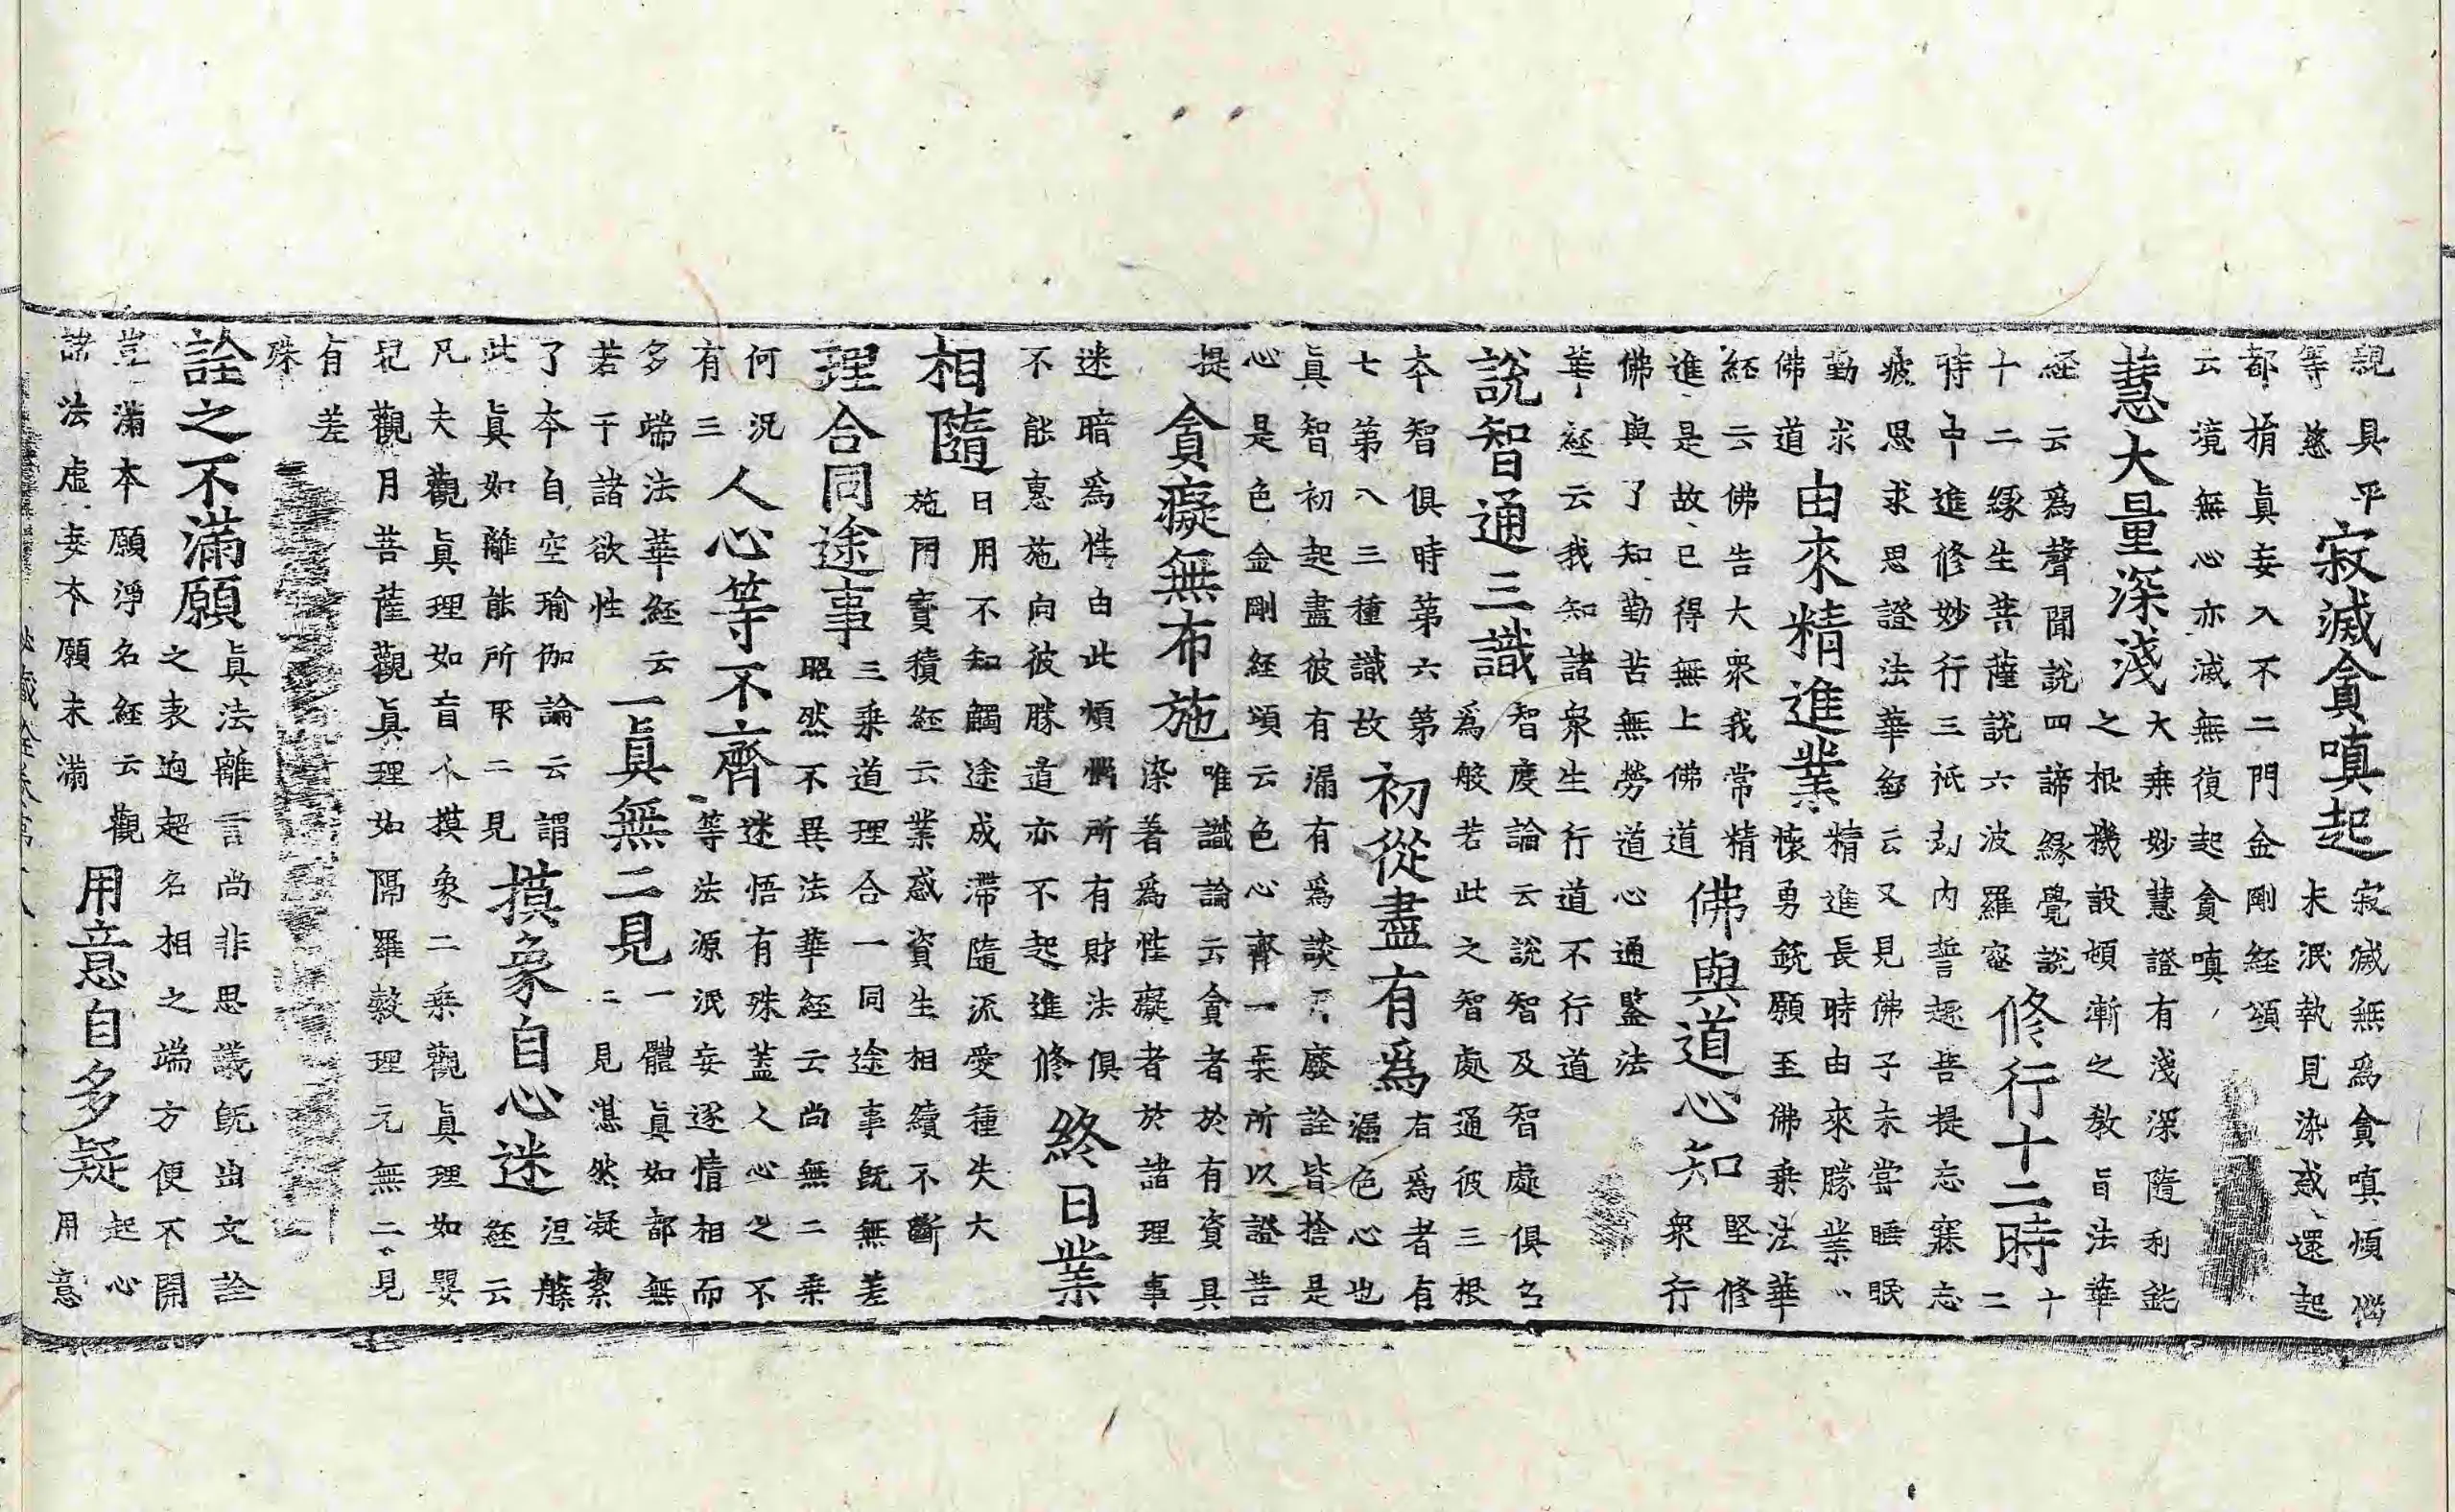 親具平
等慈
寂滅貪嗔起
寂滅無爲貪嗔煩惱
未泯執見染惑還起
都捐眞妄入不二門金剛経頌
云境無心亦滅無復起貪嗔
慧大量深淺
大乗妙慧證有淺深隨利鈍
之根機設頓漸之教旨法華
経云爲聲聞說四諦縁覺說
十二縁生菩薩說六波羅宻
修行十二時
十
二
時中進修妙行三祇刦内誓趣菩提忘寐忘
疲思求思證法華経云又見佛子未嘗睡眠
勤求
佛道
由來精進業
精進長時由來勝業
懷勇銳願至佛乗法華
経云佛告大衆我常精
進是故已得無上佛道
佛與道心知
堅修
衆行
佛與了知勤苦無勞道心通鑒法
華経云我知諸衆生行道不行道
說智通三識
智度論云說智及智處俱名
爲般若此之智處通彼三根
本智俱時第六第
七第八三種識故
初從盡有爲
有爲者有
漏色心也
眞智初起盡彼有漏有爲談不廢詮皆捨是
心是色金剛経頌云色心齊一棄所以證菩
提
貪癡無布施
唯識論云貪者於有資具
染著爲性癡者於諸理事
迷暗爲性由此煩惱所有財法俱
不能惠施向彼勝道亦不起進修
終日業
相隨
日用不知觸途成滯隨流愛種失大
施門寶積経云業惑資生相續不斷
理合同途事
三乗道理合一同途事旣無差
昭然不異法華経云尚無二乗
何況
有三
人心等不齊
迷悟有殊蓋人心之不
等法源泯妄逐情相而
多端法華経云
若干諸欲性
一眞無二見
一體眞如都無
二見湛然凝素
了本自空瑜伽論云謂
此眞如離能所取二見
摸象自心迷
涅槃
経云
凡夫觀眞理如盲人摸象二乗觀眞理如嬰
兒觀月菩薩觀眞理如隔羅縠理元無二見
有差
殊
詮之不滿願
眞法離言尚非思議旣出文詮
之表迥超名相之端方便不開
豈滿本願淨名経云觀
諸法虛妄本願未滿
用意自多疑
起心
用意